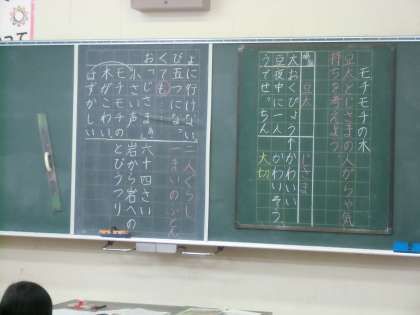 モチモチの木
豆太とじさまの人がらや気
持ちを考えよう
豆太
じさま
おくびょう
かわいい
夜中に一人
かわいそう
せっちん
大切
に行けない
五つになっ
ても
「じさまぁ」
小さい声
モチモチの
木がこわい
はずかしい
二人ぐらし
一まいのふとん
六十四さい
岩から岩への
とびうつり
って